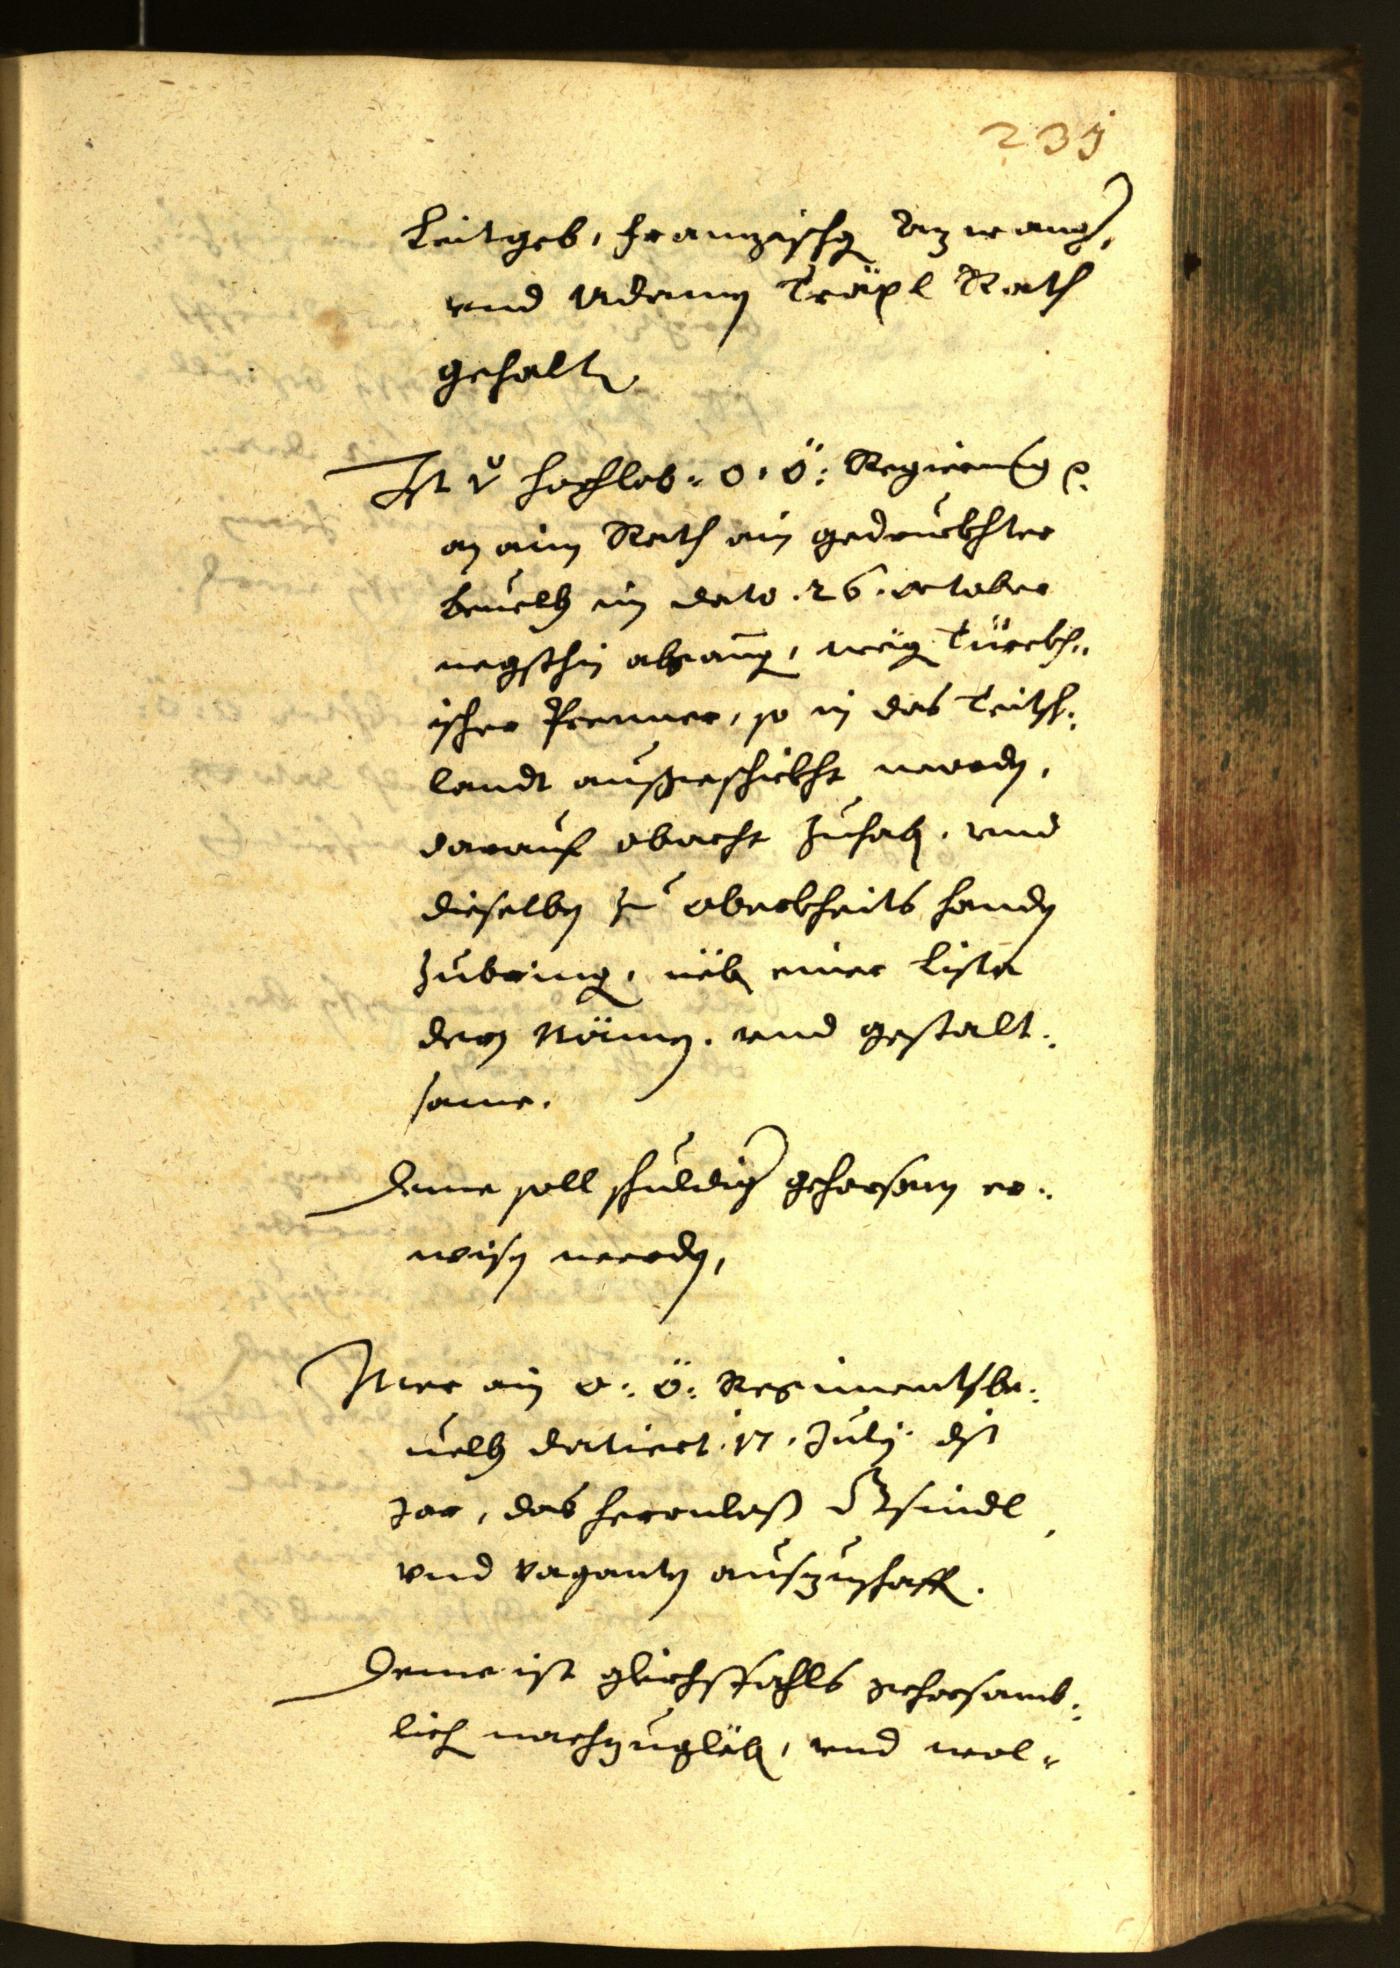 239
Leitgeb, Franzischg Vnzwang,
vnd Adamen Träxl Rath
gehalten
Ist v hochlob: O: Ö: Regierung
an ain Rath ain gedruckhter
beuelh in dato .26. october
negsthin abgang, weg Türckh:
ischer Prenner, so in das Teitsch:
landt außgeschickht worden,
darauf obacht zuhaben. vnd
dieselben zu oberkheits handen
zubringen, neben einer Lista
deren Nämen. vnd gestalt:
same.
Deme soll schuldig gehorsam er:
wisen werden,
Mer ain O: Ö: Regimentsbe:
uelh datiert .17. Julij. dist
Jar, das herrnloß Gsindl,
vnd vaganten auszuschaffen.
Deme ist gleichsfahls gehorsamb:
lich nachzugleben, vnd wol: